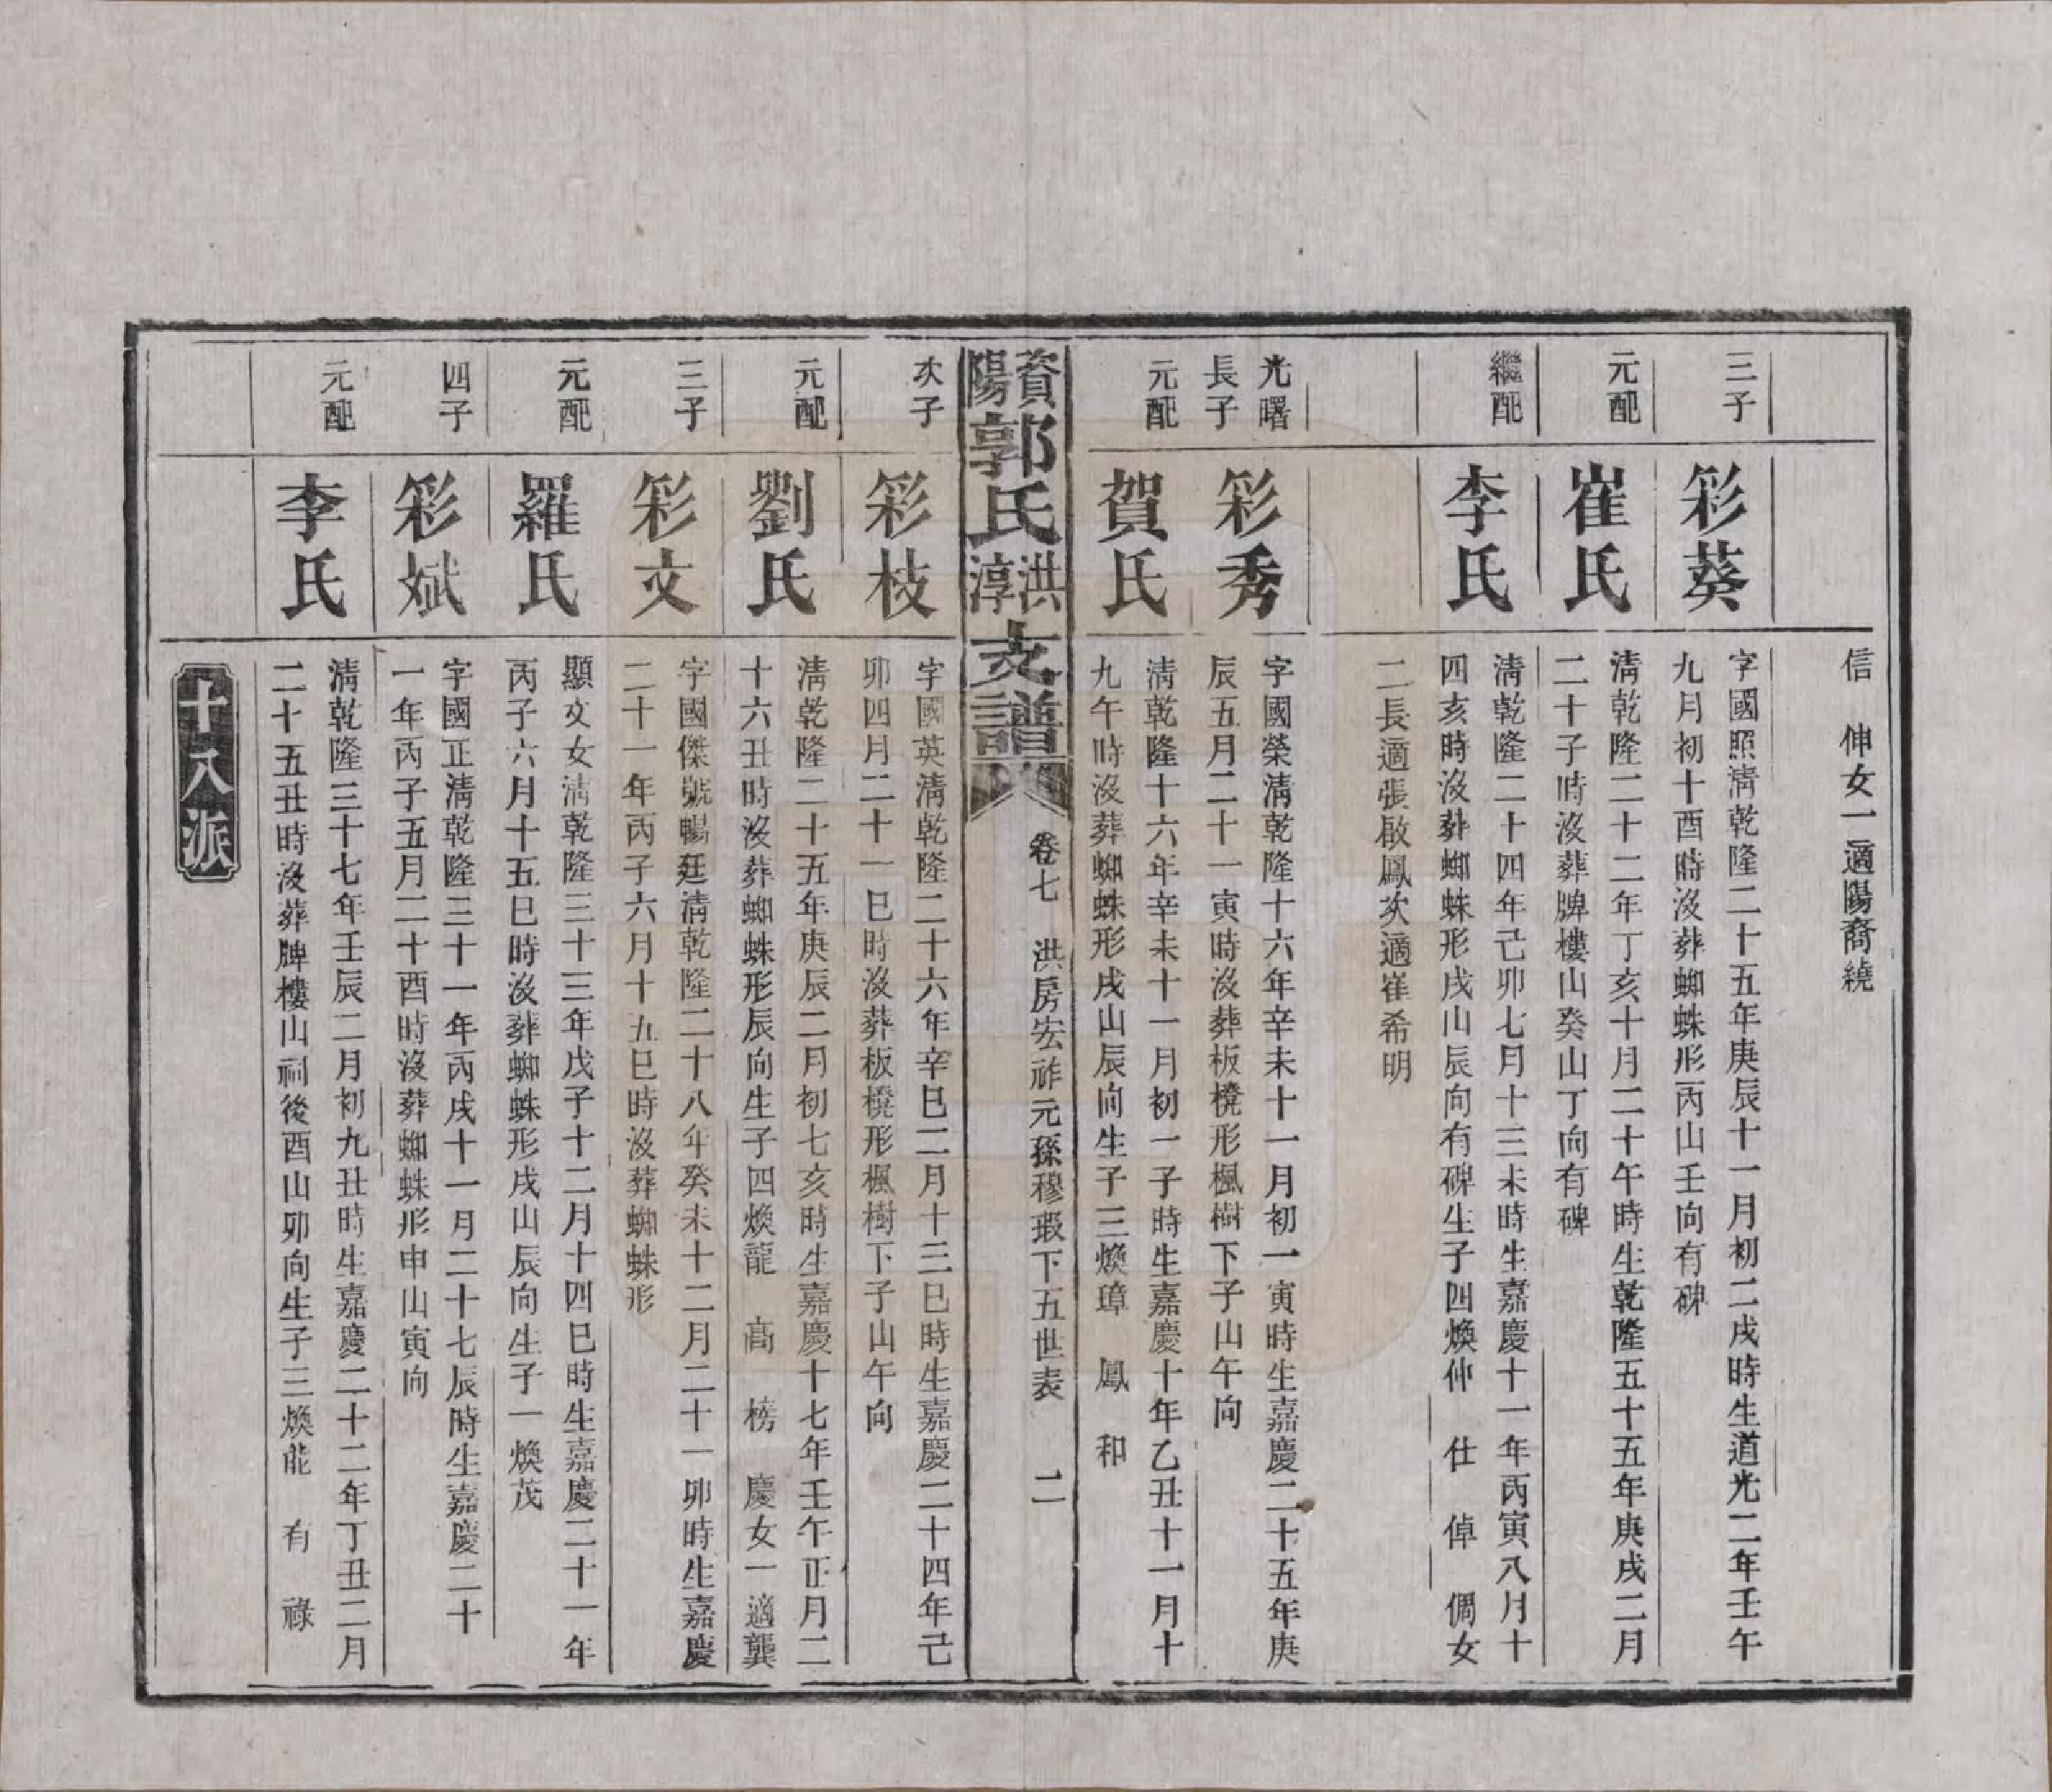 信　伸女一適陽裔繞
三子
彩葵
字國照淸乾隆二十五年庚辰十一月初二戌時生道光二年壬午
九月初十酉時沒葬蜘蛛形丙山壬向有碑
元配
崔氏
淸乾隆二十二年丁亥十月二十午時生乾隆五十五年庚戌二月
二十子時沒葬牌樓山癸山丁向有碑
繼配
李氏
淸乾隆二十四年己卯七月十三未時生嘉慶十一年丙寅八月十
四亥時沒葬蜘蛛形戌山辰向有碑生子四煥仲　仕　倬　倜女
二長適張啟鳳次適崔希明
光曙
長子
彩秀
字國榮淸乾隆十六年辛未十一月初一寅時生嘉慶二十五年庚
辰五月二十一寅時沒葬板櫈形楓樹下子山午向
元配
賀氏
淸乾隆十六年辛未十一月初一子時生嘉慶十年乙丑十一月十
九午時沒葬蜘蛛形戌山辰向生子三煥璋　鳳　和
資陽郭氏洪淳支譜
卷七　洪房宏祚元孫穆瑕下五世表　二
次子
彩枝
字國英淸乾隆二十六年辛巳二月十三巳時生嘉慶二十四年己
卯四月二十一巳時沒葬板櫈形楓樹下子山午向
元配
劉氏
淸乾隆二十五年庚辰二月初七亥時生嘉慶十七年壬午正月二
十六丑時沒葬蜘蛛形辰向生子四煥龍　高　榜　慶女一適龔
三子
彩文
字國傑號暢廷淸乾隆二十八年癸未十二月二十一卯時生嘉慶
二十一年丙子六月十五巳時沒葬蜘蛛形
元配
羅氏
顯文女淸乾隆三十三年戊子十二月十四巳時生嘉慶二十一年
丙子六月十五巳時沒葬蜘蛛形戌山辰向生子一煥茂
四子
彩斌
字國正淸乾隆三十一年丙戌十一月二十七辰時生嘉慶二十
一年丙子五月二十酉時沒葬蜘蛛形申山寅向
元配
李氏
淸乾隆三十七年壬辰二月初九丑時生嘉慶二十二年丁丑二月
二十五丑時沒葬牌樓山祠後酉山卯向生子三煥能　有　祿
十八派